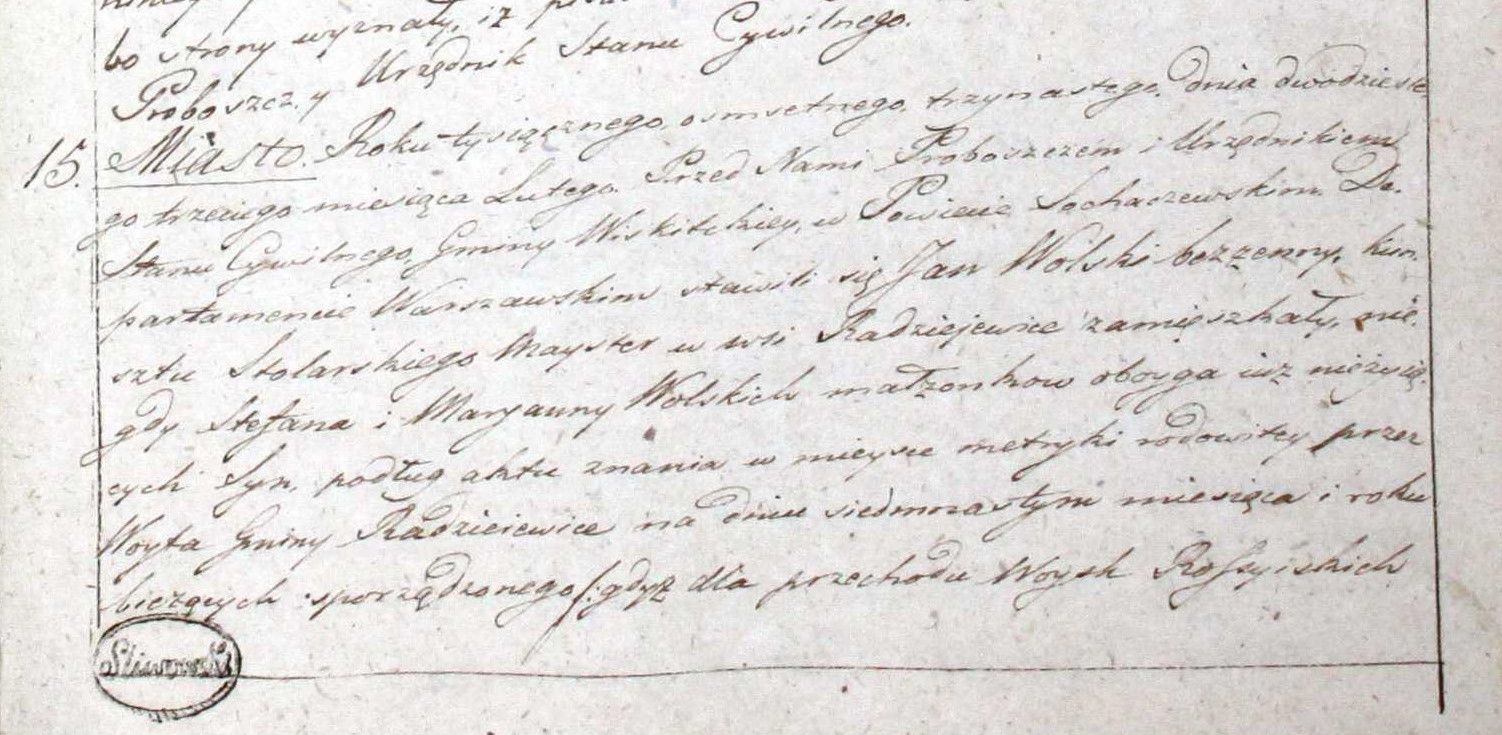 bo strony wyznały, iż
Proboszcz y Urzędnik Stanu Cywilnego.
15. Miasto. Roku tysiącznego osmsetnego trzynastego dnia dwódzieste
go trzeciego miesiąca Lutego. Przed Nami Proboszczem i Urzędnikiem
Stanu Cywilnego, Gminy Wiskitckiey, w Powiecie Sochaczewskim De.
partamencie Warszawskim stawili się Jan Wolski bezżenny, kun.
sztu Stolarskiego Mayster w wsi Radziejewice zamięszkały, nie.
gdy Stefana i Maryanny Wolskich małżonkow oboyga iuż nieżyią.
cych Syn, podług aktu znania w mieysce metryki rodowitey przez
Woyta Gminy Radzieiewice na dniu siedmnastym miesiąca i roku
bieżących sporządzonego /: gdyż dla przechodu Woysk Rossyiskich